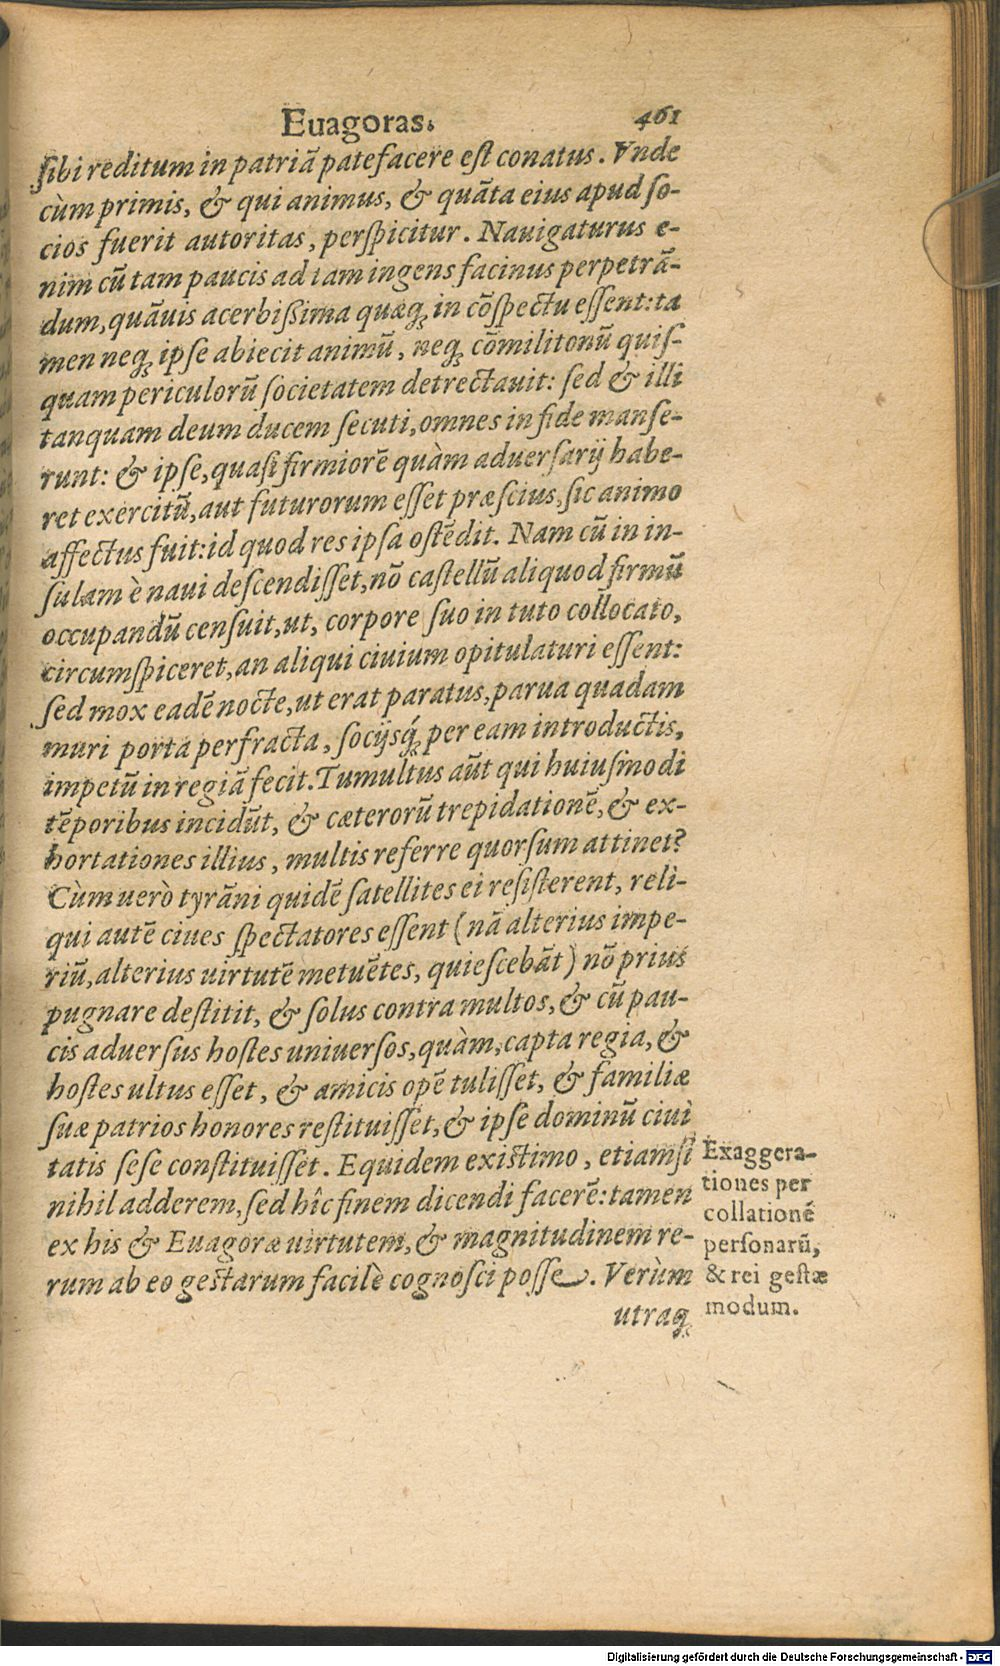 Euagoras. 461
sibi reditum in patriã patefacere est conatus. Vnde
cùm primis, & qui animus, & quãta eius apud so-
cios fuerit autoritas, perspicitur. Nauigaturus e-
nim cũ tam paucis ad tam ingens facinus perpetrã-
dum, quãuis acerbissima quæq; in cõspectu essent: ta
men neq; ipse abiecit animũ, neq; cõmilitonũ quis-
quam periculorũ societatem detrectauit: sed & illi
tanquam deum ducem secuti, omnes in fide manse-
runt: & ipse, quasi firmiorẽ quàm aduersarij habe-
ret exercitũ, aut futurorum esset præscius, sic animo
affectus fuit: id quod res ipsa ostẽdit. Nam cũ in in-
sulam è naui descendisset, nõ castellũ aliquod firmũ
occupandũ censuit, ut, corpore suo in tuto collocato,
circumspiceret, an aliqui ciuium opitulaturi essent:
sed mox eadẽ nocte, ut erat paratus, parua quadam
muri porta perfracta, socijsq́; per eam introductis,
impetũ in regiã fecit. Tumultus aũt qui huiusmodi
tẽporibus incidũt, & cæterorũ trepidationẽ, & ex-
hortationes illius, multis referre quorsum attinet?
Cùm uerò tyrãni quidẽ satellites ei resisterent, reli-
qui autẽ ciues spectatores essent (nã alterius impe-
riũ, alterius uirtutẽ metuẽtes, quiescebãt) nõ prius
pugnare destitit, & solus contra multos, & cũ pau-
cis aduersus hostes uniuersos, quàm, capta regia, &
hostes ultus esset, & amicis opẽ tulisset, & familiæ
suæ patrios honores restituisset, & ipse dominũ ciui
tatis sese constituisset. Equidem existimo, etiamsi
nihil adderem, sed hîc finem dicendi facerẽ: tamen
ex his & Euagoræ uirtutem, & magnitudinem re-
rum ab eo gestarum facilè cognosci posse. Verùm
utraq;
Exaggera-
tiones per
collationẽ
personarũ,
& rei gestæ
modum.
Digitalisierung gefördert durch die Deutsche Forschungsgemeinschaft - DFG